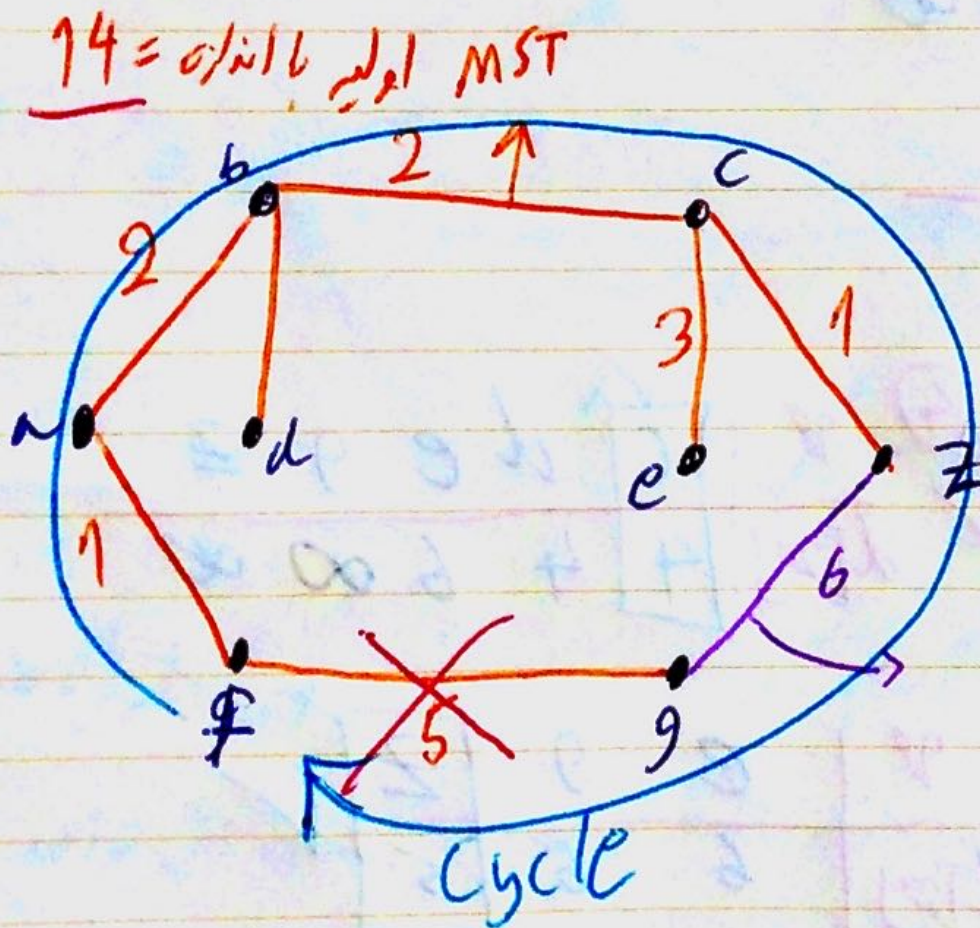 MST اولیه با اندازه = 14
b 2 c
2
3 1
a d e z
1 6
f 5 g
cycle